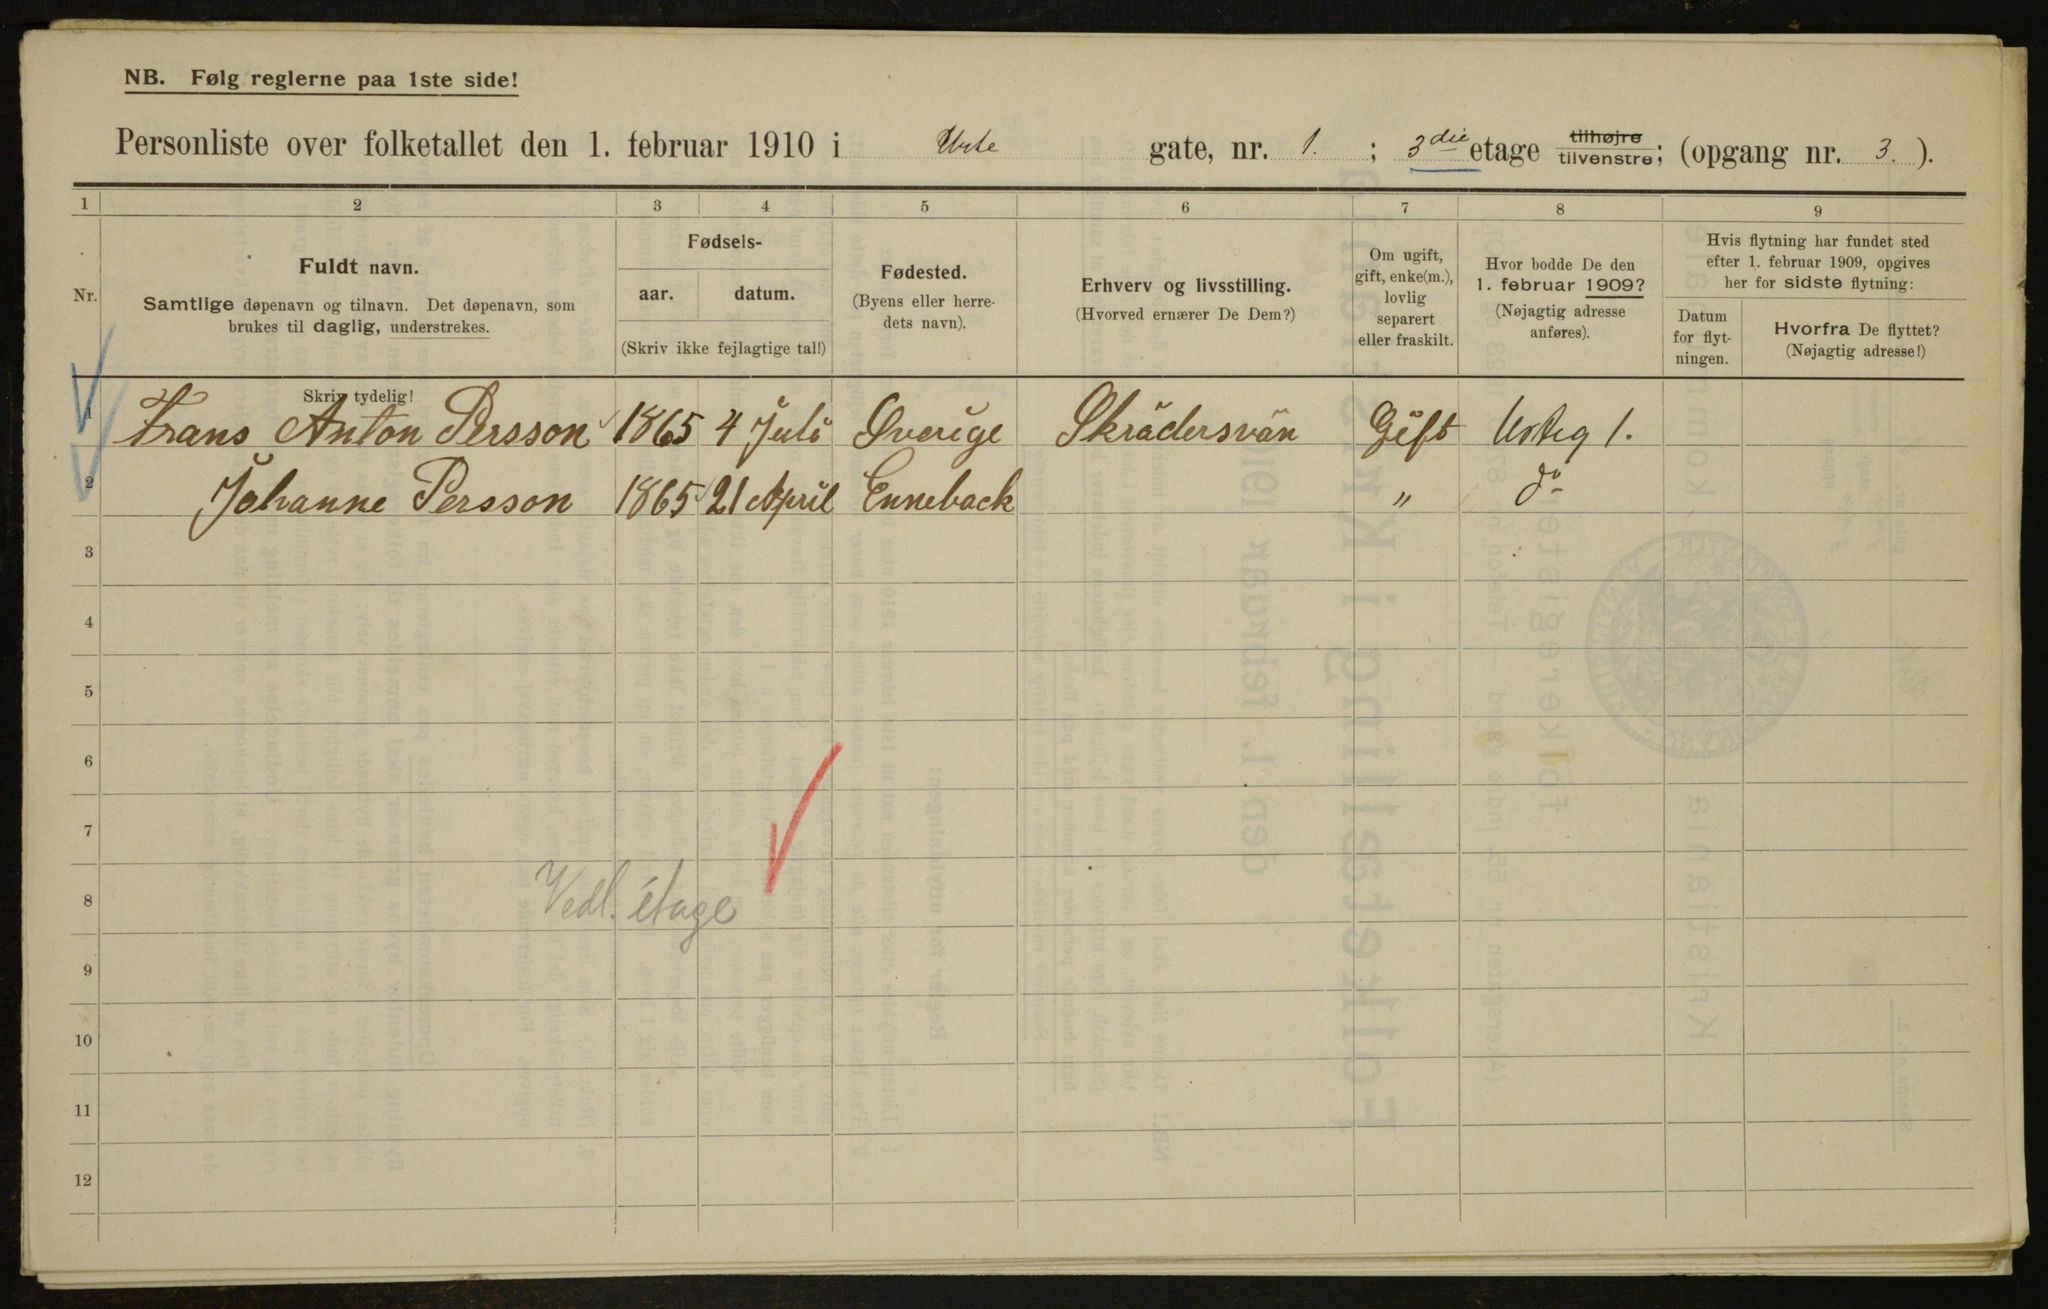 NB. Følg reglerne paa 1ste side!
Personliste over folketallet den 1. februar 1910 i Urte gate, nr. 1. ; 3die etage tilhøjre tilvenstre; (opgang nr. 3. ).
1 2 3 4 5 6 7 8 9
Nr.
Fuldt navn.
Samtlige døpenavn og tilnavn. Det døpenavn, som
brukes til daglig, understrekes.
Skriv tydelig!
Fødsels-
aar. datum.
(Skriv ikke fejlagtige tal!)
Fødested.
(Byens eller herre-
dets navn).
Erhverv og livsstilling.
(Hvorved ernærer De Dem?)
Om ugift,
gift, enke(m.),
lovlig
separert
eller fraskilt.
Hvor bodde De den
1. februar 1909?
(Nøjagtig adresse
anføres).
Hvis flytning har fundet sted
efter 1. februar 1909, opgives
her for sidste flytning:
Datum
for flyt-
ningen.
Hvorfra De flyttet?
(Nøjagtig adresse!)
1 Frans Anton Persson 1865 4 Juli Sverige Skrädersvän Gift Urteg 1.
2 Johanne Persson 1865 21 April Enneback " do
3
4
5
6
7
8 Vedl. étage
9
10
11
12